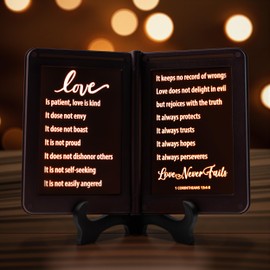 love
Is patient, love is kind
It dose not envy
It dose not boast
It is not proud
It does not dishonor others
It is not self-seeking
It is not easily angered
It keeps no record of wrongs
Love does not delight in evil
but rejoices with the truth
It always protects
It always trusts
It always hopes
It always perseveres
Love Never Fails
1 CORINTHIANS 13:4-8